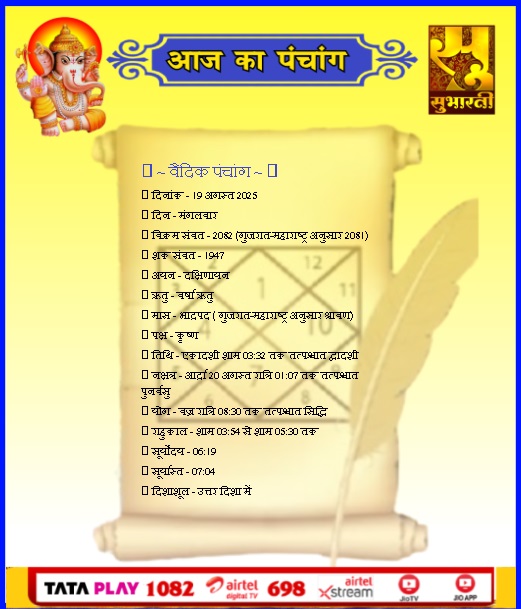 आज का पंचांग
सुभारती
~ वैदिक पंचांग ~
दिनांक - 19 अगस्त 2025
दिन - मंगलवार
विक्रम संवत - 2082 (गुजरात-महाराष्ट्र अनुसार 2081)
शक संवत - 1947
अयन - दक्षिणायन
ऋतु - वर्षा ऋतु
मास - भाद्रपद ( गुजरात-महाराष्ट्र अनुसार श्रावण)
पक्ष - कृष्ण
तिथि - एकादशी शाम 03:32 तक तत्पश्चात द्वादशी
नक्षत्र - आर्द्रा 20 अगस्त रात्रि 01:07 तक तत्पश्चात
पुनर्वसु
योग - वज्र रात्रि 08:30 तक तत्पश्चात सिद्धि
राहुकाल - शाम 03:54 से शाम 05:30 तक
सूर्योदय - 06:19
सूर्यास्त - 07:04
दिशाशूल - उत्तर दिशा में
12
1
11
10
8
TATA PLAY 1082 airtel digital TV 698 airtel Xstream JioTV JIO APP